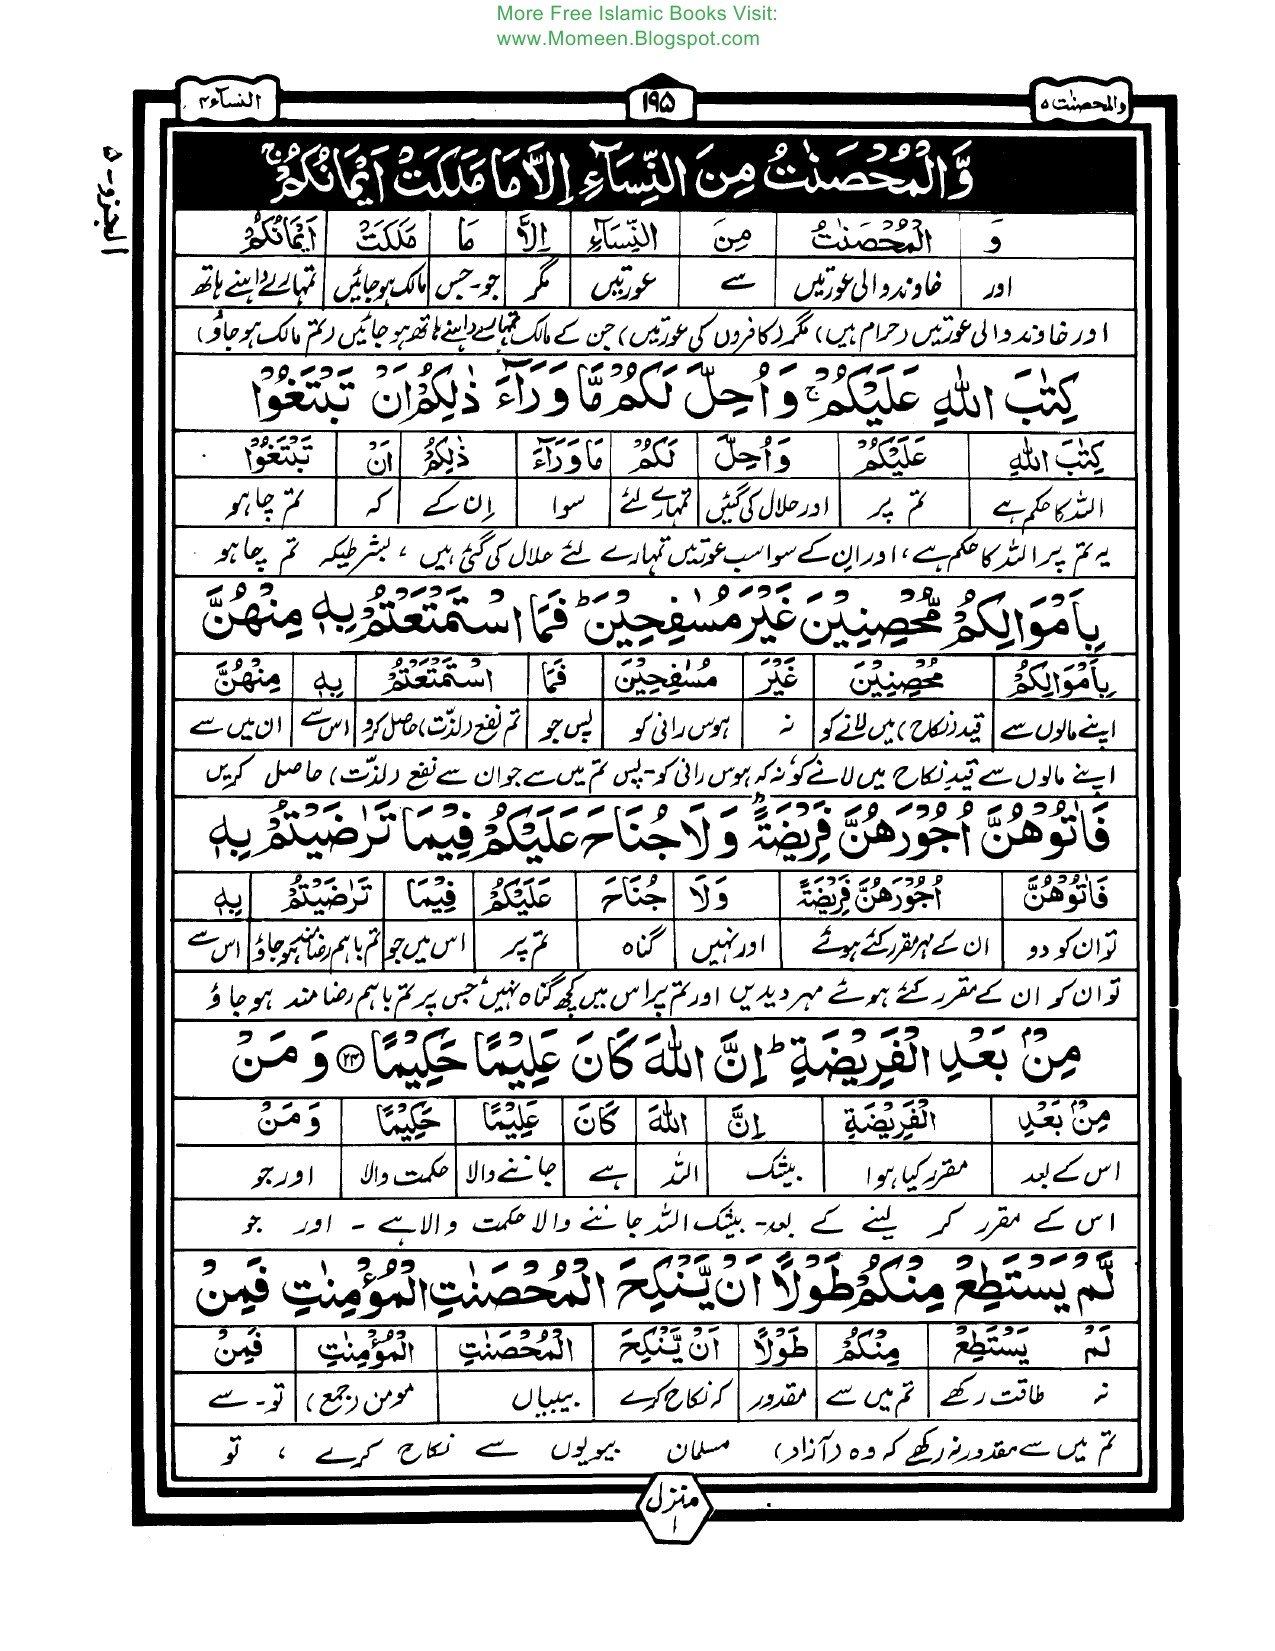 More Free Islamic Books Visit:
www.Momeen.Blogspot.com
والمحصنٰت ۵
۱۹۵
النسآء ۴
الجزو - ۵
وَّالْمُحْصَنٰتُ مِنَ النِّسَآءِ اِلَّا مَا مَلَكَتْ اَيْمَانُكُمْ ۚ
وَ الْمُحْصَنٰتُ مِنَ النِّسَآءِ اِلَّا مَا مَلَكَتْ اَيْمَانُكُمْ
اور خاوند والی عورتیں سے عورتیں مگر جو۔جس مالک ہو جائیں تمہارے داہنے ہاتھ
اور خاوند والی عورتیں (حرام ہیں) مگر (کافروں کی عورتیں) جن کے مالک تمہارے داہنے ہاتھ ہو جائیں (تم مالک ہو جاؤ)
كِتٰبَ اللّٰهِ عَلَيْكُمْ ۚ وَاُحِلَّ لَكُمْ مَّا وَرَآءَ ذٰلِكُمْ اَنْ تَبْتَغُوْا
كِتٰبَ اللّٰهِ عَلَيْكُمْ وَاُحِلَّ لَكُمْ مَا وَرَآءَ ذٰلِكُمْ اَنْ تَبْتَغُوْا
اللہ کا حکم ہے تم پر اور حلال کی گئیں تمہارے لئے سوا اِن کے کہ تم چاہو
یہ تم پر اللہ کا حکم ہے، اور ان کے سوا سب عورتیں تمہارے لئے حلال کی گئی ہیں، بشرطیکہ تم چاہو
بِاَمْوَالِكُمْ مُّحْصِنِيْنَ غَيْرَ مُسٰفِحِيْنَ ؕ فَمَا اسْتَمْتَعْتُمْ بِهٖ مِنْهُنَّ
بِاَمْوَالِكُمْ مُحْصِنِيْنَ غَيْرَ مُسٰفِحِيْنَ فَمَا اسْتَمْتَعْتُمْ بِهٖ مِنْهُنَّ
اپنے مالوں سے قید (نکاح) میں لانے کو نہ ہوس رانی کو پس جو تم نفع (لذت) حاصل کرو اس سے ان میں سے
اپنے مالوں سے قید نکاح میں لانے کو نہ کہ ہوس رانی کو۔ پس تم میں سے جو ان سے نفع (لذت) حاصل کریں
فَاٰتُوْهُنَّ اُجُوْرَهُنَّ فَرِيْضَةً ؕ وَلَا جُنَاحَ عَلَيْكُمْ فِيْمَا تَرٰضَيْتُمْ بِهٖ
فَاٰتُوْهُنَّ اُجُوْرَهُنَّ فَرِيْضَةً وَلَا جُنَاحَ عَلَيْكُمْ فِيْمَا تَرٰضَيْتُمْ بِهٖ
تو ان کو دو ان کے مہر مقرر کئے ہوئے اور نہیں گناہ تم پر اس میں جو تم باہم رضامند ہو جاؤ اس سے
تو ان کو ان کے مقرر کئے ہوئے مہر دیدیں اور تم پر اس میں کچھ گناہ نہیں جس پر تم باہم رضا مند ہو جاؤ
مِنْۢ بَعْدِ الْفَرِيْضَةِ ؕ اِنَّ اللّٰهَ كَانَ عَلِيْمًا حَكِيْمًا ۝۲۴ وَمَنْ
مِنْۢ بَعْدِ الْفَرِيْضَةِ اِنَّ اللّٰهَ كَانَ عَلِيْمًا حَكِيْمًا وَمَنْ
اس کے بعد مقرر کیا ہوا بیشک اللہ ہے جاننے والا حکمت والا اور جو
اس کے مقرر کر لینے کے بعد۔ بیشک اللہ جاننے والا حکمت والا ہے ۔ اور جو
لَّمْ يَسْتَطِعْ مِنْكُمْ طَوْلًا اَنْ يَّنْكِحَ الْمُحْصَنٰتِ الْمُؤْمِنٰتِ فَمِنْ
لَمْ يَسْتَطِعْ مِنْكُمْ طَوْلًا اَنْ يَّنْكِحَ الْمُحْصَنٰتِ الْمُؤْمِنٰتِ فَمِنْ
نہ طاقت رکھے تم میں سے مقدور کہ نکاح کرے بیبیاں مومن (جمع) تو۔ سے
تم میں سے مقدور نہ رکھے کہ وہ (آزاد) مسلمان بیویوں سے نکاح کرے ، تو
منزل
۱